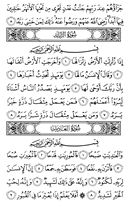 جَزَآؤُهُمْ عِندَ رَبِّهِمْ جَنَّٰتُ عَدْنٍ تَجْرِى مِن تَحْتِهَا ٱلْأَنْهَٰرُ خَٰلِدِينَ
فِيهَآ أَبَدًا ۖ رَّضِىَ ٱللَّهُ عَنْهُمْ وَرَضُوا۟ عَنْهُ ۚ ذَٰلِكَ لِمَنْ خَشِىَ رَبَّهُۥ ٨
سُورَةُ الزَّلْزَلَةِ
بِسْمِ ٱللَّهِ ٱلرَّحْمَٰنِ ٱلرَّحِيمِ
إِذَا زُلْزِلَتِ ٱلْأَرْضُ زِلْزَالَهَا ١ وَأَخْرَجَتِ ٱلْأَرْضُ أَثْقَالَهَا ٢
وَقَالَ ٱلْإِنسَٰنُ مَا لَهَا ٣ يَوْمَئِذٍ تُحَدِّثُ أَخْبَارَهَا ٤ بِأَنَّ رَبَّكَ
أَوْحَىٰ لَهَا ٥ يَوْمَئِذٍ يَصْدُرُ ٱلنَّاسُ أَشْتَاتًا لِّيُرَوْا۟ أَعْمَٰلَهُمْ ٦
فَمَن يَعْمَلْ مِثْقَالَ ذَرَّةٍ خَيْرًا يَرَهُۥ ٧ وَمَن يَعْمَلْ مِثْقَالَ ذَرَّةٍ شَرًّا يَرَهُۥ ٨
سُورَةُ العَادِيَاتِ
بِسْمِ ٱللَّهِ ٱلرَّحْمَٰنِ ٱلرَّحِيمِ
وَٱلْعَٰدِيَٰتِ ضَبْحًا ١ فَٱلْمُورِيَٰتِ قَدْحًا ٢ فَٱلْمُغِيرَٰتِ صُبْحًا ٣
فَأَثَرْنَ بِهِۦ نَقْعًا ٤ فَوَسَطْنَ بِهِۦ جَمْعًا ٥ إِنَّ ٱلْإِنسَٰنَ
لِرَبِّهِۦ لَكَنُودٌ ٦ وَإِنَّهُۥ عَلَىٰ ذَٰلِكَ لَشَهِيدٌ ٧ وَإِنَّهُۥ لِحُبِّ
ٱلْخَيْرِ لَشَدِيدٌ ٨ ۞ أَفَلَا يَعْلَمُ إِذَا بُعْثِرَ مَا فِى ٱلْقُبُورِ ٩